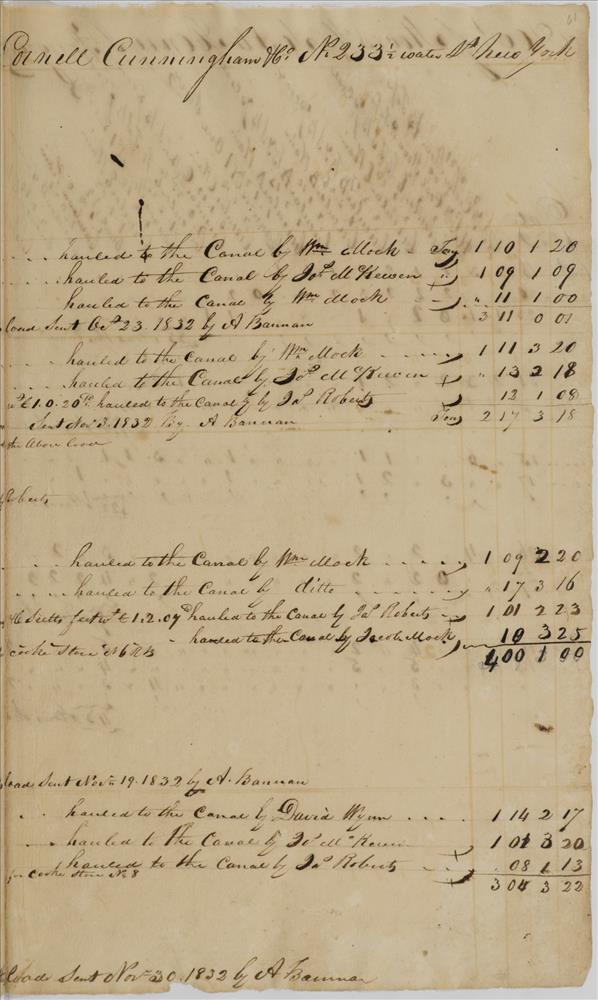 61
Cornell Cunningham & Co. No 233 ½ water St. New York
.... hauled to the Canal by Wm Mock - Tons 1 10 1 20
.... hauled to the Canal by Jos. McKewen 1 09 1 09
hauled to the Canal by Wm Mock - " 11 1 00
load Sent Oct. 23. 1832 by A Bannan 3 11 0 01
.... hauled to the Canal by Wm Mock ..... 1 11 3 20
.... hauled to the Canal by Jos. McKewen " 13 2 18
1.0.20 hauled to the Canal by Jas Roberts 12 1 08
Sent Nov. 3. 1832 By. A Bannan Tons 2 17 3 18
the Above
Roberts
.... hauled to the Canal by Wm Mock ..... 1 09 2 20
.... hauled to the Canal by ditto ..... " 17 3 16
1.2.09 hauled to the Canal by Jas Roberts 1 01 2 23
- hauled to the Canal by Jacob Mock 10 3 25
4 00 1 00
load Sent Novr 19. 1832 by A. Bannan
.. hauled to the Canal by David Wynn .... 1 14 2 17
hauled to the Canal by Jos. McKewen 1 01 3 20
hauled to the Canal by Jas Roberts .. 08 1 13
for cooke Store No. 8
3 04 3 22
load Sent Nov. 30. 1832 by A Bannan